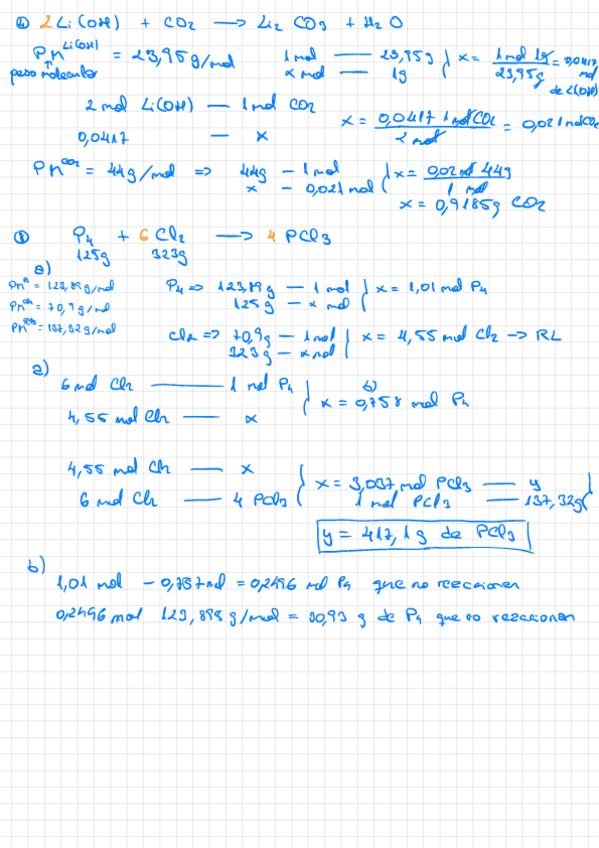 ④ 2Li(OH) + CO2 ⟶ Li2 CO3 + H2O
Pm^Li(OH) = 23,95g/mol
peso molecular
1mol — 23,95g
x mol — 1g
x = 1mol 1g / 23,95g = 0,0417 mol de Li(OH)
2 mol Li(OH) — 1mol CO2
0,0417 — x
x = 0,0417 1molCO2 / 2 mol = 0,021molCO2
Pm^CO2 = 44g/mol ⇒ 44g – 1mol
x – 0,021mol
x = 0,021mol 44g / 1 mol
x = 0,9185g CO2
P4 + 6Cl2 ⟶ 4 PCl3
125g 323g
a)
Pm = 123,89g/mol
Pm = 70,9g/mol
Pm = 137,32g/mol
P4 ⇒ 123,89g – 1 mol
125g – x mol
x = 1,01 mol P4
Cl2 ⇒ 70,9g – 1mol
323g – x mol
x = 4,55 mol Cl2 → RL
a)
6 mol Cl2 — 1 mol P4
4,55 mol Cl2 — x
b)
x = 0,758 mol P4
4,55 mol Cl2 — x
6 mol Cl2 — 4 PCl3
x = 3,037 mol PCl3 — y
1 mol PCl3 — 137,32g
y = 417,1 g de PCl3
b)
1,01 mol – 0,757mol = 0,2496 mol P4 que no reaccionan
0,2496 mol 123,895 g/mol = 30,93 g de P4 que no reaccionan